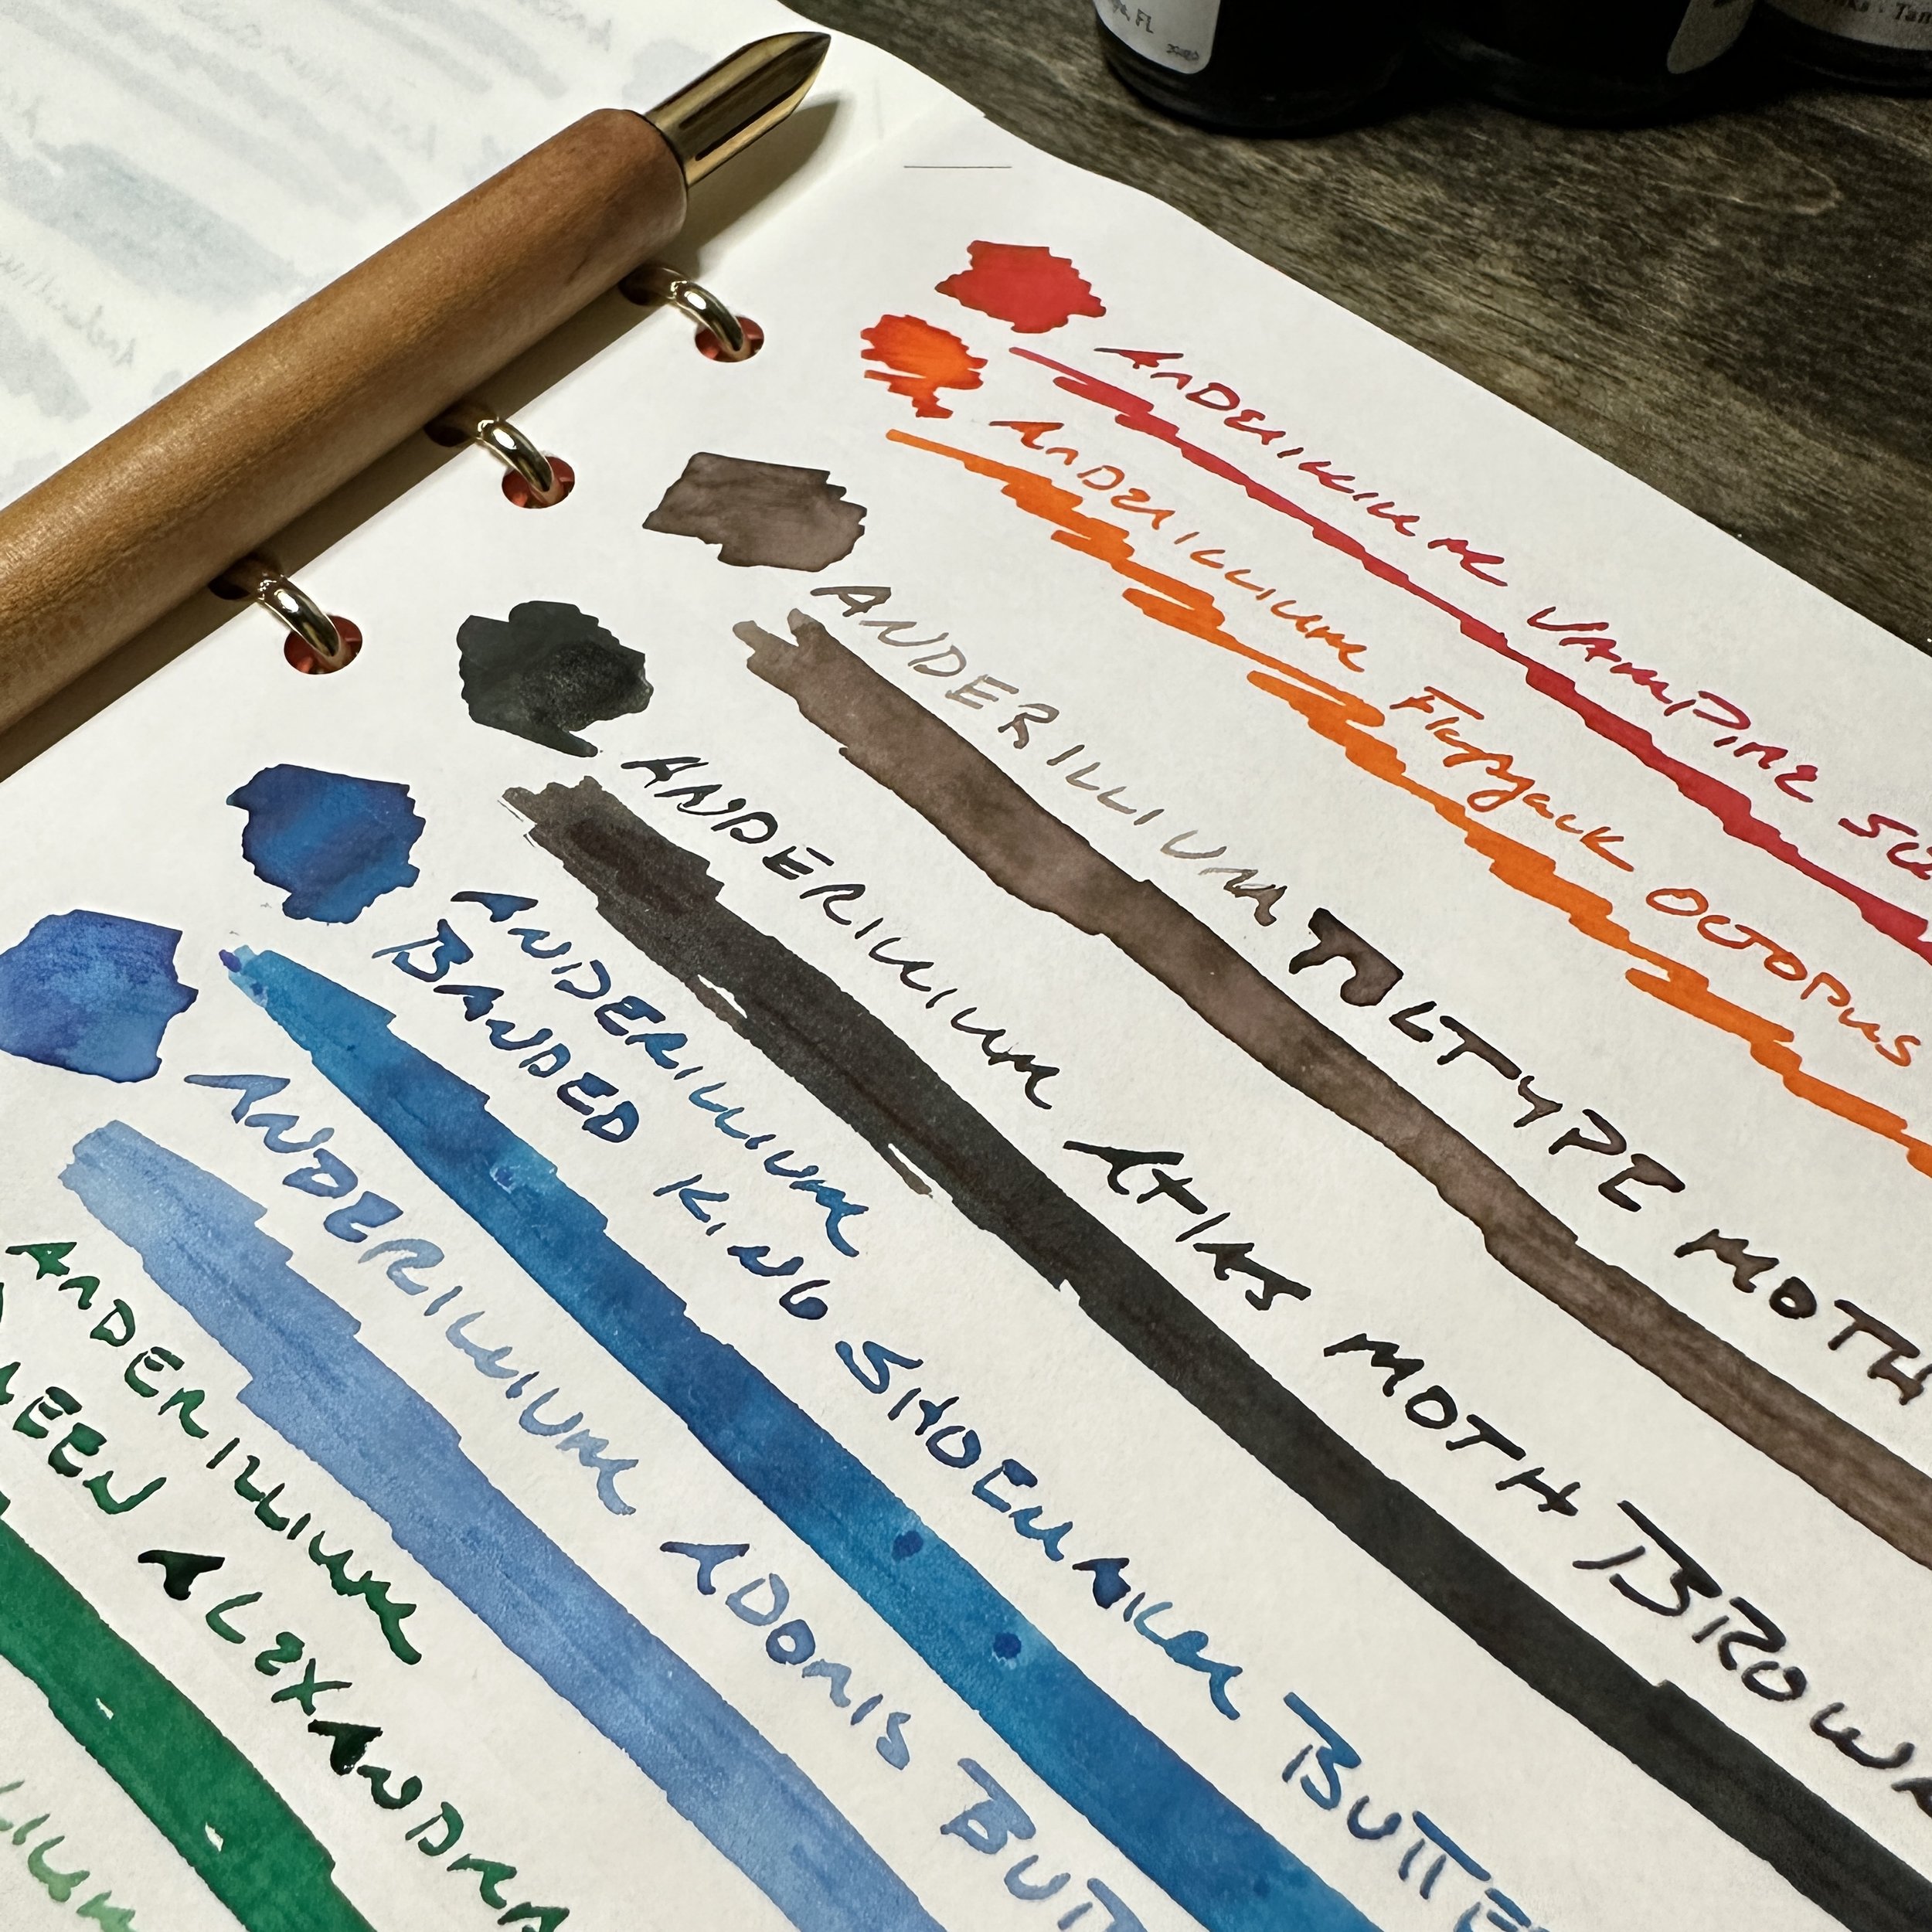 ANDERILLIUM VAMPIRE SQ
ANDERILLIUM Flapjack OCTOPUS
ANDERILLIUM TULTYPE MOTH
ANDERILLIUM Atlas MOTH BROWN
ANDERILLIUM
BANDED KING SHOEMAKER BUTTE
ANDERILLIUM ADONIS BUTT
ANDERILLIUM
EEN ALEXANDRA
LIUM
FL